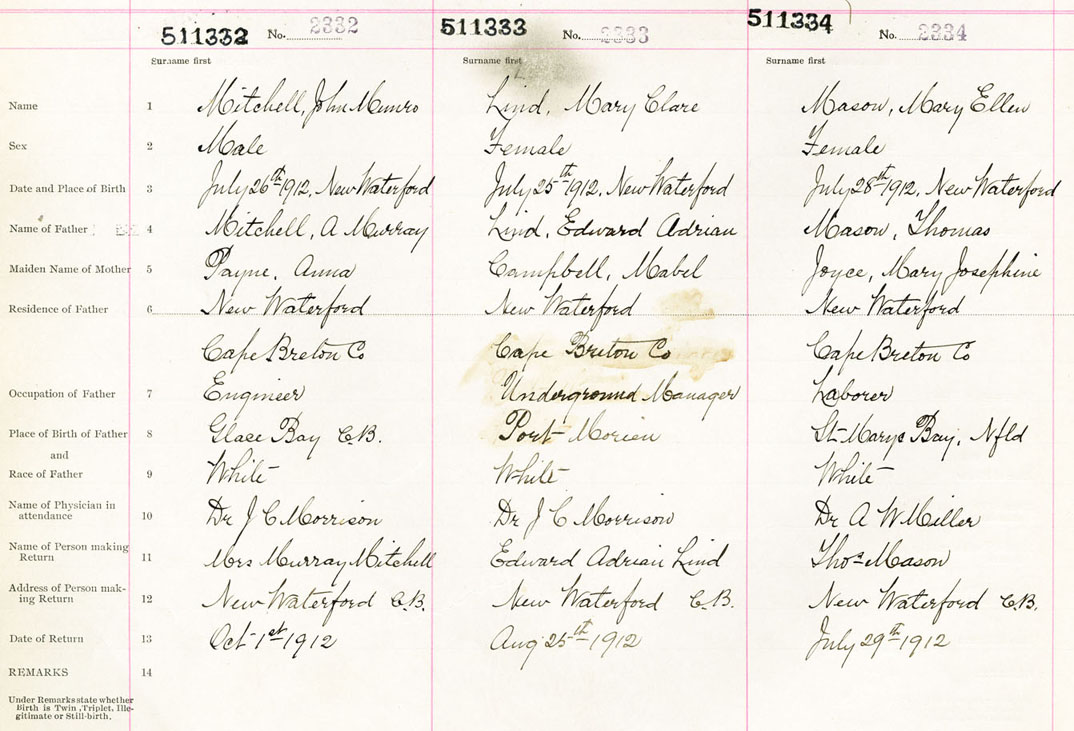 511332 No. 2332 511333 No. 2333 511334 No. 2334
Surname first Surname first Surname first
Name 1 Mitchell, John Munro Lind, Mary Clare Mason, Mary Ellen
Sex 2 Male Female Female
Date and Place of Birth 3 July 26th 1912, New Waterford July 25th 1912, New Waterford July 28th 1912, New Waterford
Name of Father 4 Mitchell, A Murray Lind, Edward Adrian Mason, Thomas
Maiden Name of Mother 5 Payne, Anna Campbell, Mabel Joyce, Mary Josephine
Residence of Father 6 New Waterford New Waterford New Waterford
Cape Breton Co Cape Breton Co Cape Breton Co
Occupation of Father 7 Engineer Underground Manager Laborer
Place of Birth of Father 8 Glace Bay C.B. Port Morien St Marys Bay, Nfld
and
Race of Father 9 White White White
Name of Physician in
attendance 10 Dr J C Morrison Dr J C Morrison Dr A W Miller
Name of Person making
Return 11 Mrs Murray Mitchell Edward Adrian Lind Thos Mason
Address of Person mak-
ing Return 12 New Waterford C.B. New Waterford C.B. New Waterford C.B.
Date of Return 13 Oct 1st 1912 Aug 25th 1912 July 29th 1912
REMARKS 14
Under Remarks state whether
Birth is Twin, Triplet, Ille-
gitimate or Still-birth.